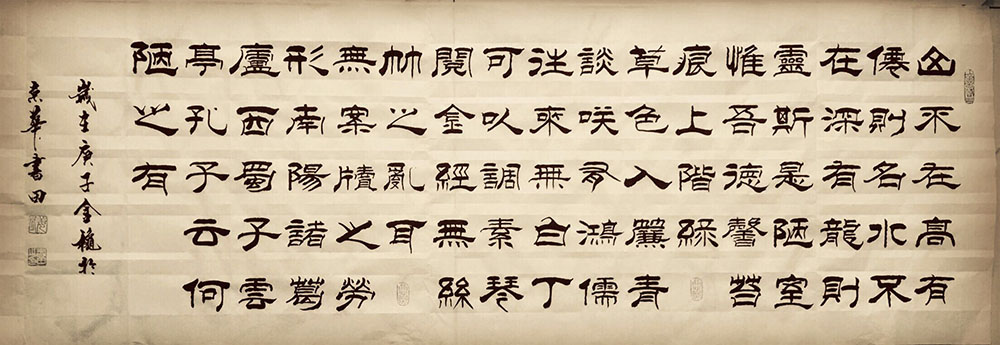 山不在高有
僊則名水不
在深有龍則
靈斯是陋室
惟吾德馨苔
痕上階綠
草色入簾青
談咲有鴻儒
往來無白丁
可以調素琴
閱金經無絲
竹之亂耳
無案牘之勞
形南陽諸葛
廬西蜀子雲
亭孔子云何
陋之有
歲在庚子金穐於
京華書田